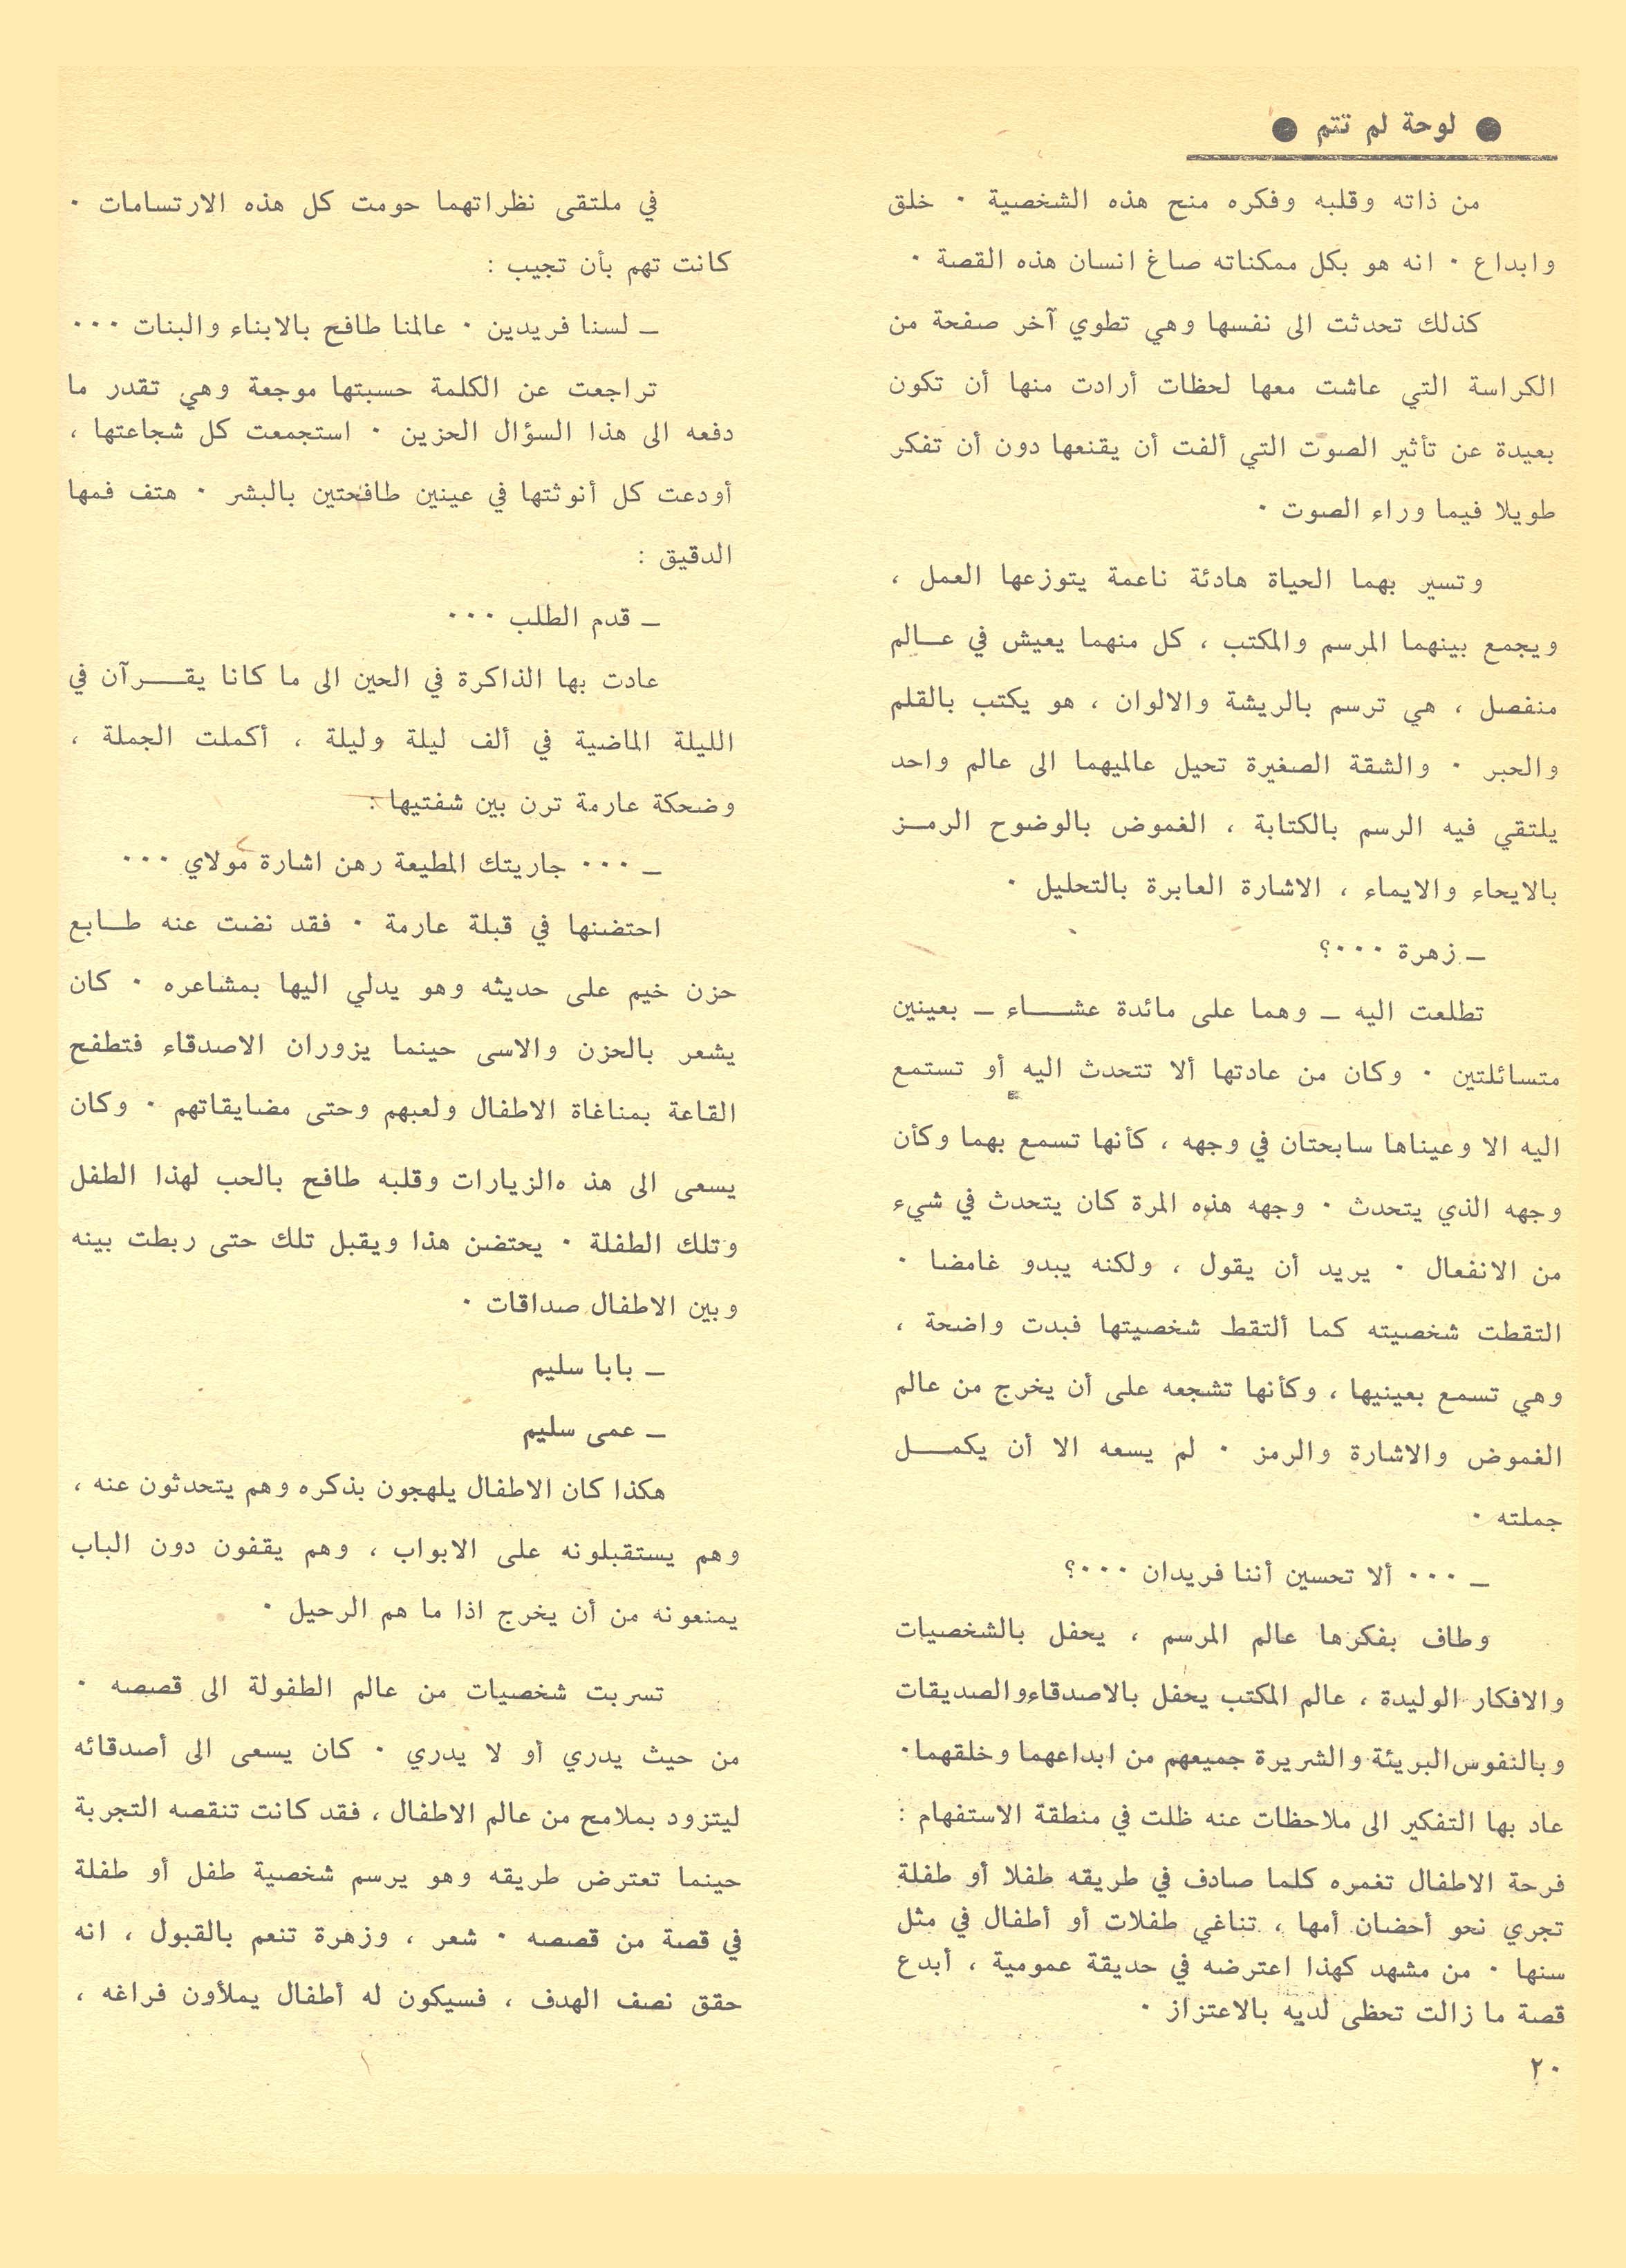 ● لوحة لم تتم ●
من ذاته وقلبه وفكره منح هذه الشخصية ٠ خلق
وابداع ٠ انه هو بكل ممكناته صاغ انسان هذه القصة ٠
كذلك تحدثت الى نفسها وهي تطوي آخر صفحة من
الكراسة التي عاشت معها لحظات أرادت منها أن تكون
بعيدة عن تأثير الصوت التي ألفت أن يقنعها دون أن تفكر
طويلا فيما وراء الصوت ٠
وتسير بهما الحياة هادئة ناعمة يتوزعها العمل ،
ويجمع بينهما المرسم والمكتب ، كل منهما يعيش في عـالم
منفصل ، هي ترسم بالريشة والالوان ، هو يكتب بالقلم
والحبر ٠ والشقة الصغيرة تحيل عالميهما الى عالم واحد
يلتقي فيه الرسم بالكتابة ، الغموض بالوضوح الرمـز
بالايحاء والايماء ، الاشارة العابرة بالتحليل ٠
ـ زهرة ٠٠٠؟
تطلعت اليه ـ وهما على مائدة عشـــاء ـ بعينين
متسائلتين ٠ وكان من عادتها ألا تتحدث اليه أو تستمع
اليه الا وعيناها سابحتان في وجهه ، كأنها تسمع بهما وكأن
وجهه الذي يتحدث ٠ وجهه هذه المرة كان يتحدث في شيء
من الانفعال ٠ يريد أن يقول ، ولكنه يبدو غامضا ٠
التقطت شخصيته كما ألتقط شخصيتها فبدت واضحة ،
وهي تسمع بعينيها ، وكأنها تشجعه على أن يخرج من عالم
الغموض والاشارة والرمز ٠ لم يسعه الا أن يكمـــل
جملته ٠
ـ ٠٠٠ ألا تحسين أننا فريدان ٠٠٠؟
وطاف بفكرها عالم المرسم ، يحفل بالشخصيات
والافكار الوليدة ، عالم المكتب يحفل بالاصدقاء والصديقات
وبالنفوس البريئة والشريرة جميعهم من ابداعهما وخلقهما٠
عاد بها التفكير الى ملاحظات عنه ظلت في منطقة الاستفهام :
فرحة الاطفال تغمره كلما صادف في طريقه طفلا أو طفلة
تجري نحو أحضان أمها ، تناغي طفلات أو أطفال في مثل
سنها ٠ من مشهد كهذا اعترضه في حديقة عمومية ، أبدع
قصة ما زالت تحظى لديه بالاعتزاز ٠
في ملتقى نظراتهما حومت كل هذه الارتسامات ٠
كانت تهم بأن تجيب :
ـ لسنا فريدين ٠ عالمنا طافح بالابناء والبنات ٠٠٠
تراجعت عن الكلمة حسبتها موجعة وهي تقدر ما
دفعه الى هذا السؤال الحزين ٠ استجمعت كل شجاعتها ،
أودعت كل أنوثتها في عينين طافحتين بالبشر ٠ هتف فمها
الدقيق :
ـ قدم الطلب ٠٠٠
عادت بها الذاكرة في الحين الى ما كانا يقـــرآن في
الليلة الماضية في ألف ليلة وليلة ، أكملت الجملة ،
وضحكة عارمة ترن بين شفتيها :
ـ ٠٠٠ جاريتك المطيعة رهن اشارة مولاي ٠٠٠
احتضنها في قبلة عارمة ٠ فقد نضت عنه طـابع
حزن خيم على حديثه وهو يدلي اليها بمشاعره ٠ كان
يشعر بالحزن والاسى حينما يزوران الاصدقاء فتطفح
القاعة بمناغاة الاطفال ولعبهم وحتى مضايقاتهم ٠ وكان
يسعى الى هذ ه الزيارات وقلبه طافح بالحب لهذا الطفل
وتلك الطفلة ٠ يحتضن هذا ويقبل تلك حتى ربطت بينه
وبين الاطفال صداقات ٠
ـ بابا سليم
ـ عمى سليم
هكذا كان الاطفال يلهجون بذكره وهم يتحدثون عنه ،
وهم يستقبلونه على الابواب ، وهم يقفون دون الباب
يمنعونه من أن يخرج اذا ما هم الرحيل ٠
تسربت شخصيات من عالم الطفولة الى قصصه ٠
من حيث يدري أو لا يدري ٠ كان يسعى الى أصدقائه
ليتزود بملامح من عالم الاطفال ، فقد كانت تنقصه التجربة
حينما تعترض طريقه وهو يرسم شخصية طفل أو طفلة
في قصة من قصصه ٠ شعر ، وزهرة تنعم بالقبول ، انه
حقق نصف الهدف ، فسيكون له أطفال يملأون فراغه ،
٢٠